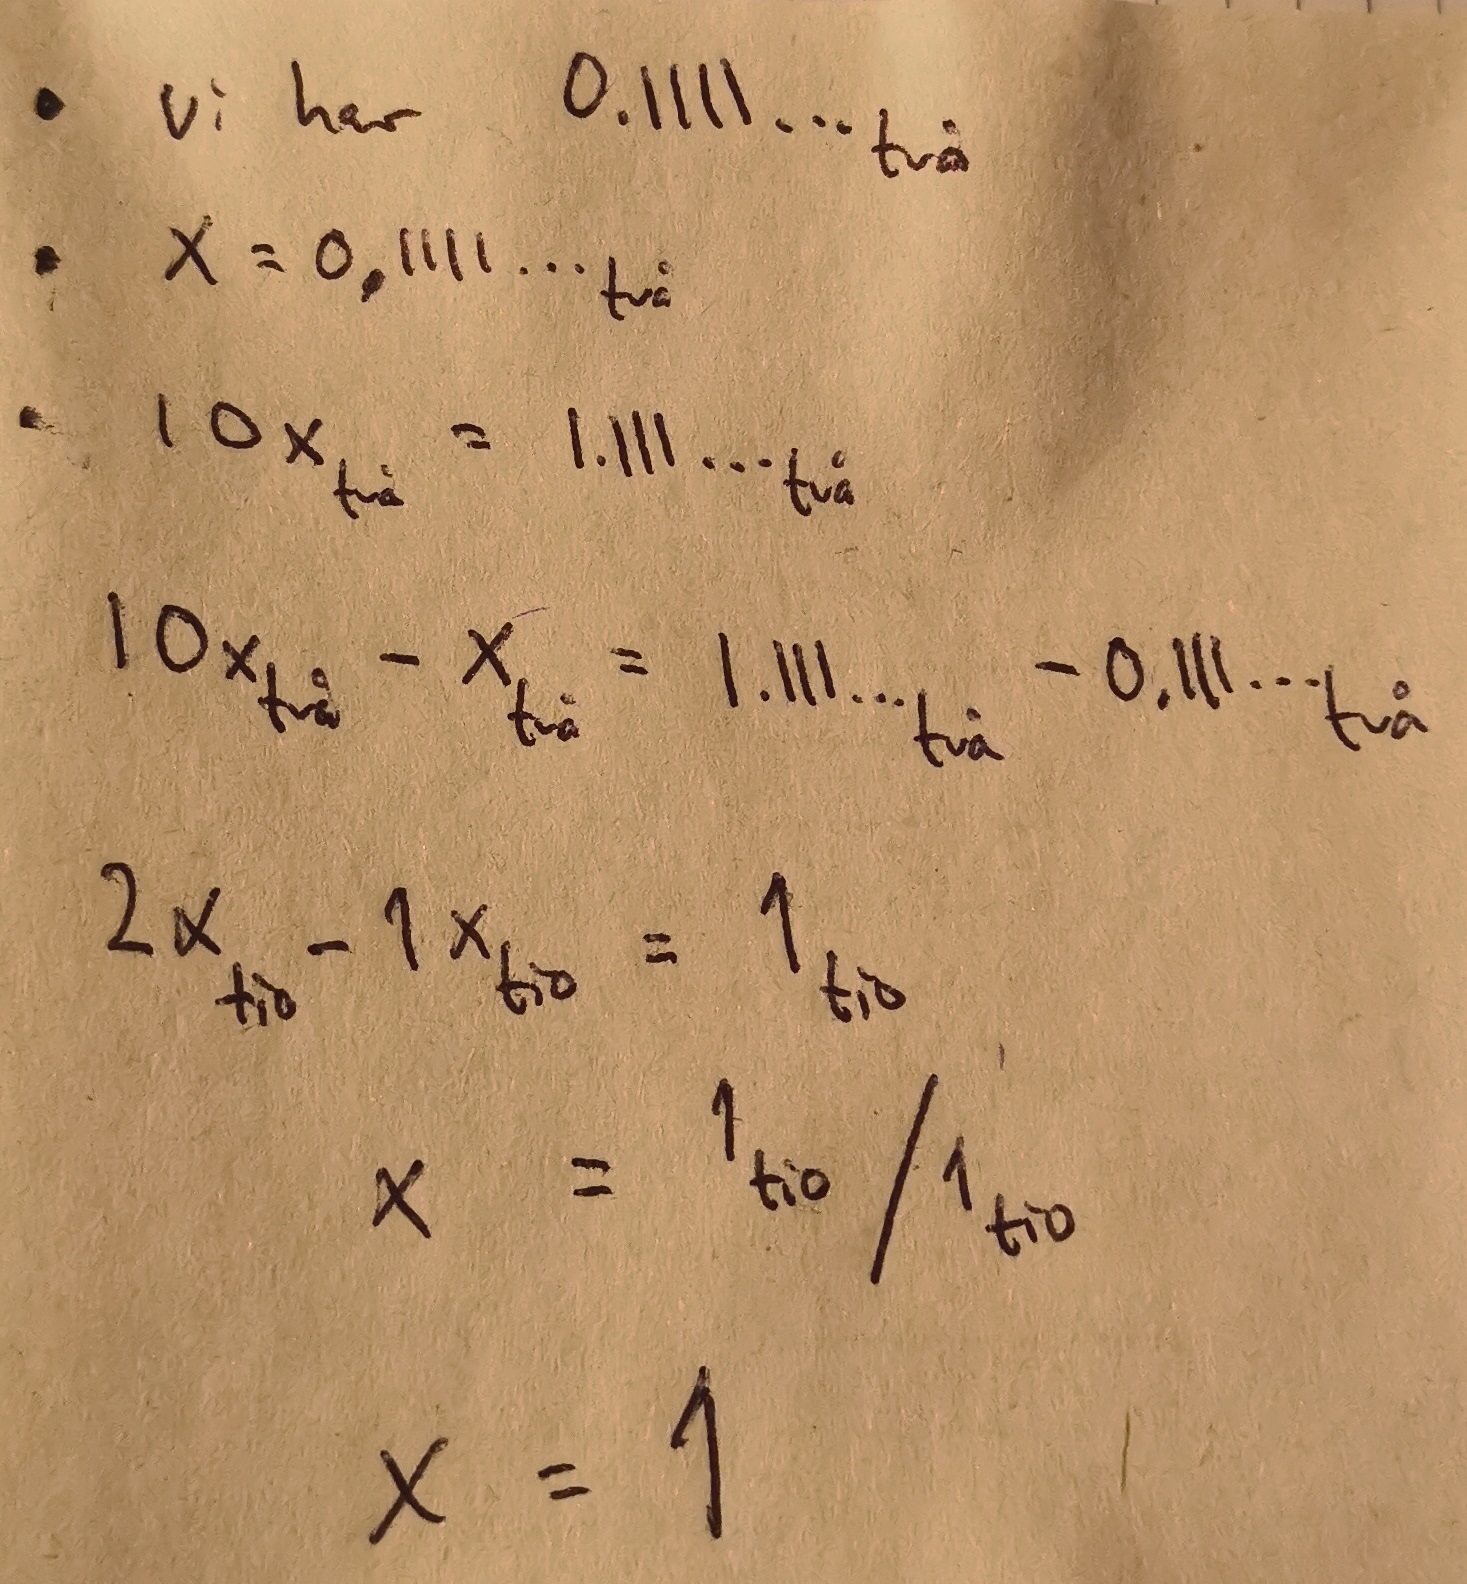 • Vi har 0.1111...två
• X = 0,1111...två
• 10x två = 1.111...två
10x två - x två = 1.111...två - 0.111...två
2x tio - 1x tio = 1 tio
x = 1 tio / 1 tio
x = 1